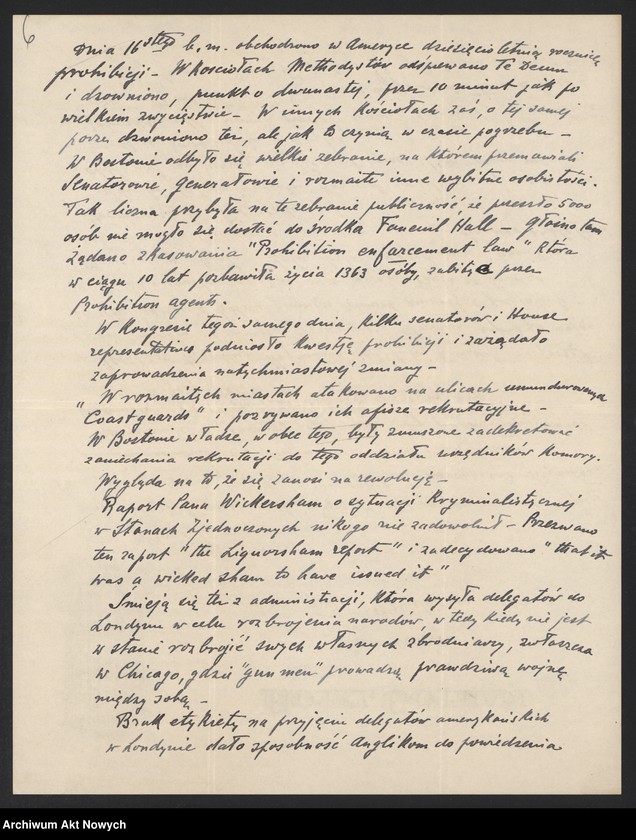 6
Dnia 16stego b.m. obchodzono w Ameryce dziesięcioletnią rocznicę
prohibicji - W Kościołach Methodystów odśpiewano Te Deum
i dzwoniono, punkt o dwunastej, przez 10 minut jak po
wielkiem zwycięstwie - W innych Kościołach zaś, o tej samej
porze dzwoniono też, ale jak to czynią w czasie pogrzebu -
W Bostonie odbyło się wielkie zebranie, na którem przemawiali
Senatorowie, generałowie i rozmaite inne wybitne osobistości.
Tak liczna przybyła na te zebranie publiczność, że przeszło 5000
osób nie mogło się dostać do środka Faneuil Hall - głośno tam
żądano skasowania "Prohibition enforcement law" która
w ciągu 10 lat pozbawiła życia 1363 osoby, zabite przez
Prohibition agents.
W Kongresie tegoż samego dnia, kilku senatorów i House
representatives podniosło kwestję prohibicji i zażądało
zaprowadzenia natychmiastowej zmiany -
W rozmaitych miastach atakowano na ulicach umundurowanych
"Coast guards" i pozrywano ich afisze rekrutacyjne -
W Bostonie władze, wobec tego, były zmuszone zadekretować
zaniechania rekrutacji do tego oddziału urzędników Komory.
Wygląda na to, że się zanosi na rewolucję -
Raport Pana Wickersham o sytuacji Kryminalistycznej
w Stanach Zjednoczonych nikogo nie zadowolnił - Przezwano
ten raport "the Liquorsham report" i zadecydowano "that it
was a wicked sham to have issued it"
Śmieją się też z administracji, która wysyła delegatów do
Londynu w celu rozbrojenia narodów, wtedy kiedy nie jest
w stanie rozbroić swych własnych zbrodniarzy, zwłaszcza
w Chicago, gdzie "gun men" prowadzą prawdziwą wojnę
między sobą -
Brak etykiety na przyjęciu delegatów amerykańskich
w Londynie dało sposobność Anglikom do powiedzenia
Archiwum Akt Nowych